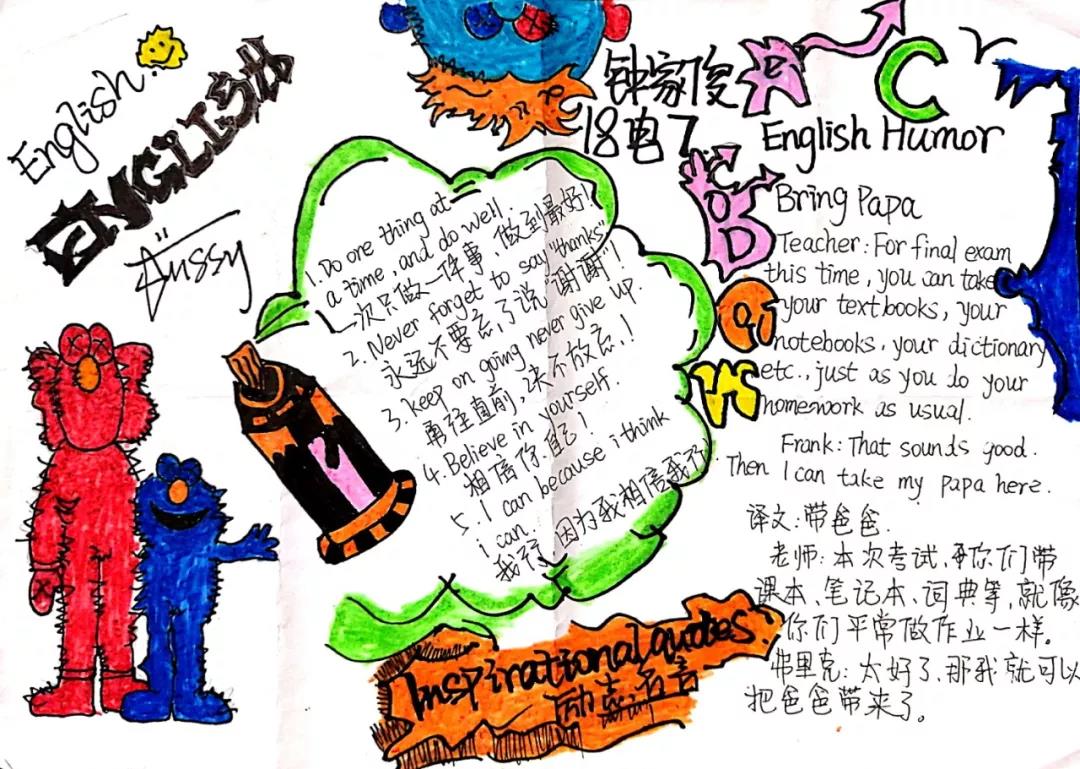 English
ENGLISH
钟家俊
18电7
1. Do one thing at
a time, and do well.
一次只做一件事、做到最好!
2. Never forget to say "thanks"
永远不要忘了说"谢谢"!
3. keep on going never give up.
勇往直前,决不放弃!
4. Believe in yourself.
相信你自己!
5. I can because i think
i can.
我行,因为我相信我行.
Inspirational quotes.
励志名言
C
English Humor
Bring Papa
Teacher: For final exam
this time, you can take
your textbooks, your
notebooks, your dictionary
etc., just as you do your
homework as usual.
Frank: That sounds good.
Then I can take my papa here.
译文:带爸爸.
老师:本次考试,你们带
课本、笔记本、词典等,就像
你们平常做作业一样。
弗里克:太好了、那我就可以
把爸爸带来了。